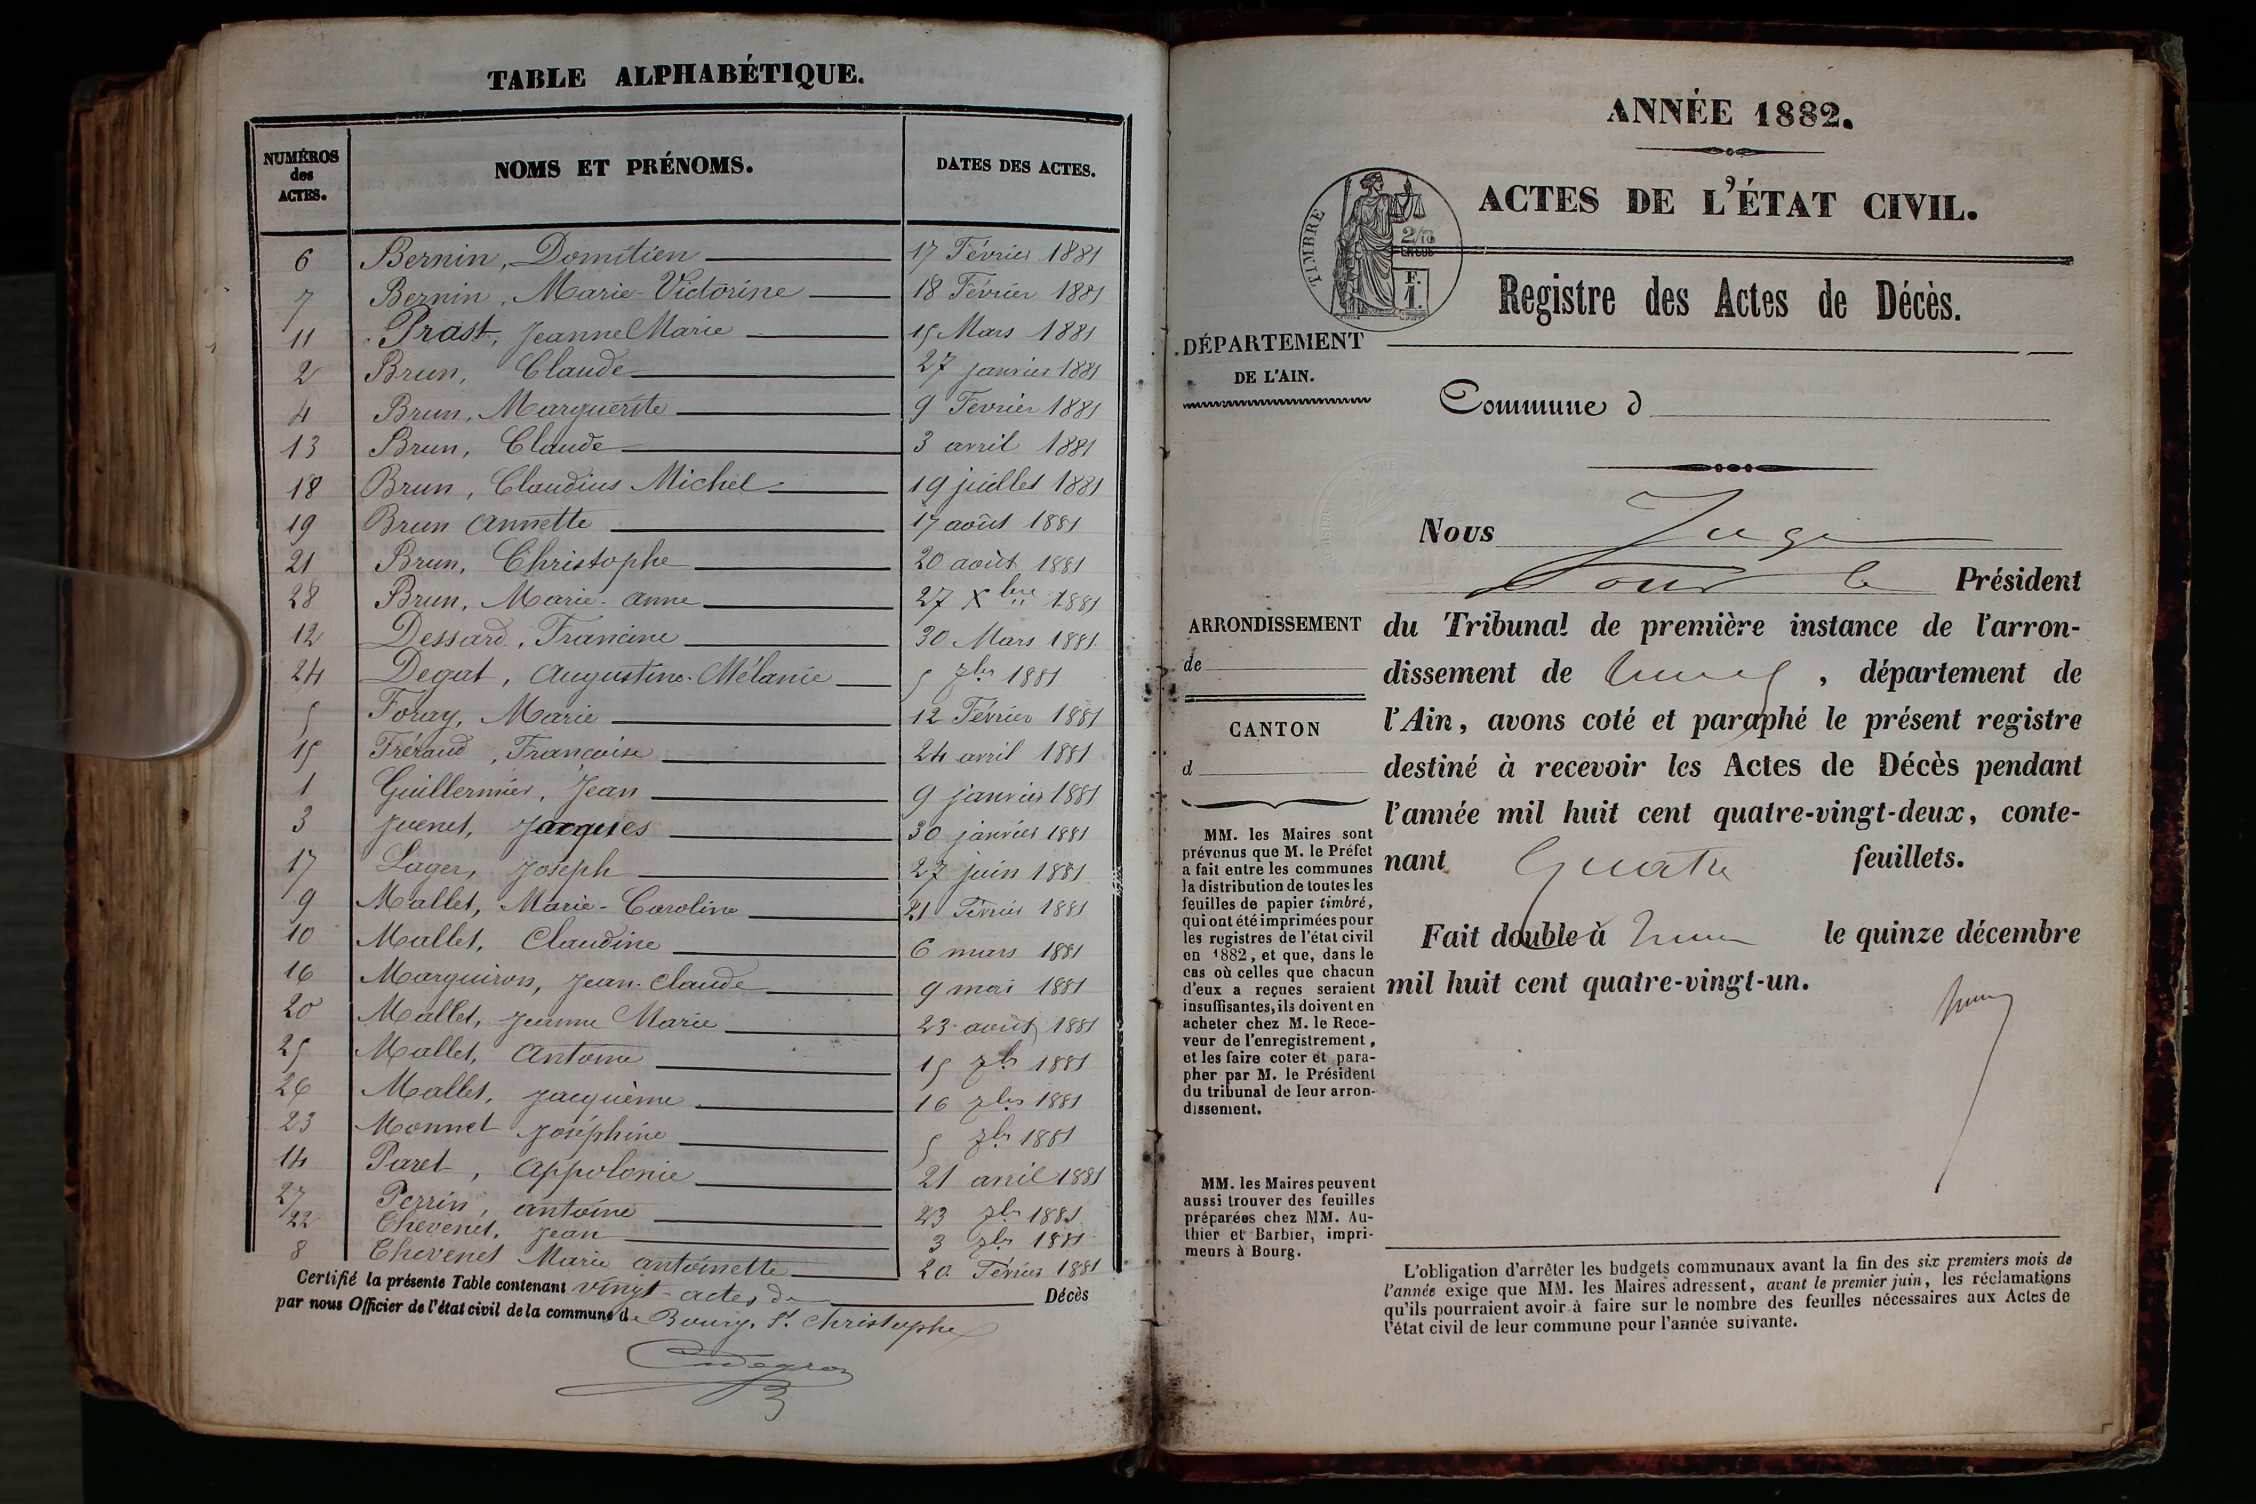 TABLE ALPHABÉTIQUE.
NUMÉROS des ACTES. NOMS ET PRÉNOMS. DATES DES ACTES.
6 Bernin, Domitien 17 Février 1881
7 Bernin, Marie-Victorine 18 Février 1881
11 Prast, Jeanne Marie 15 Mars 1881
2 Brun, Claude 27 janvier 1881
4 Brun, Marguerite 9 Fevrier 1881
13 Brun, Claude 3 avril 1881
18 Brun, Claudius Michel 19 juillet 1881
19 Brun Annette 17 août 1881
21 Brun, Christophe 20 août 1881
28 Brun, Marie-Anne 27 Xbre 1881
12 Dessard, Francine 30 Mars 1881
24 Degut, Augustine-Mélanie 5 7br 1881
5 Foray, Marie 12 Février 1881
15 Fréraud, Françoise 24 avril 1881
1 Guillermier, Jean 9 janvier 1881
3 Juenet, Jacques 30 janvier 1881
17 Lager, Joseph 27 juin 1881
9 Mallet, Marie-Caroline 21 Février 1881
10 Mallet, Claudine 6 mars 1881
16 Marguiron, Jean-Claude 9 mai 1881
20 Mallet, Jeanne Marie 23 août 1881
25 Mallet, Antoine 15 7br 1881
26 Mallet, Jacquème 16 7br 1881
23 Monnet Joséphine 5 7br 1881
14 Paret, Appolonie 21 avril 1881
27 Perrin, Antoine 23 7br 1881
22 Chevenet, Jean 3 7br 1881
8 Chevenet Marie Antoinette 20 Février 1881
Certifié la présente Table contenant vingt-actes de Décès
par nous Officier de l'état civil de la commune de Bourg. St. Christophe
ANNÉE 1882.
ACTES DE L'ÉTAT CIVIL.
TIMBRE
2/10
EN SUS
F.
1.
Registre des Actes de Décès.
DÉPARTEMENT
DE L'AIN.
Commune d
Nous Juge
Pour le Président
ARRONDISSEMENT
de
CANTON
d
du Tribunal de première instance de l'arron-
dissement de , département de
l'Ain, avons coté et paraphé le présent registre
destiné à recevoir les Actes de Décès pendant
l'année mil huit cent quatre-vingt-deux, conte-
nant Quatre feuillets.
Fait double à le quinze décembre
mil huit cent quatre-vingt-un.
MM. les Maires sont
prévenus que M. le Préfet
a fait entre les communes
la distribution de toutes les
feuilles de papier timbré,
qui ont été imprimées pour
les registres de l'état civil
en 1882, et que, dans le
cas où celles que chacun
d'eux a reçues seraient
insuffisantes, ils doivent en
acheter chez M. le Rece-
veur de l'enregistrement,
et les faire coter et para-
pher par M. le Président
du tribunal de leur arron-
dissement.
MM. les Maires peuvent
aussi trouver des feuilles
préparées chez MM. Au-
thier et Barbier, impri-
meurs à Bourg.
L'obligation d'arrêter les budgets communaux avant la fin des six premiers mois de
l'année exige que MM. les Maires adressent, avant le premier juin, les réclamations
qu'ils pourraient avoir à faire sur le nombre des feuilles nécessaires aux Actes de
l'état civil de leur commune pour l'année suivante.